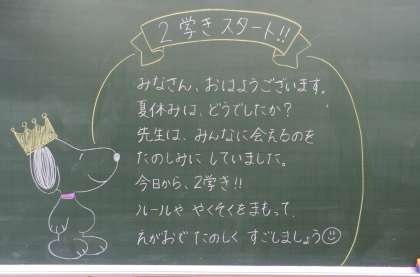 2学きスタート!!
みなさん、おはようございます。
夏休みは、どうでしたか？
先生は、みんなに会えるのを
たのしみにしていました。
今日から、2学き!!
ルールや やくそくをまもって、
えがおで たのしく すごしましょう